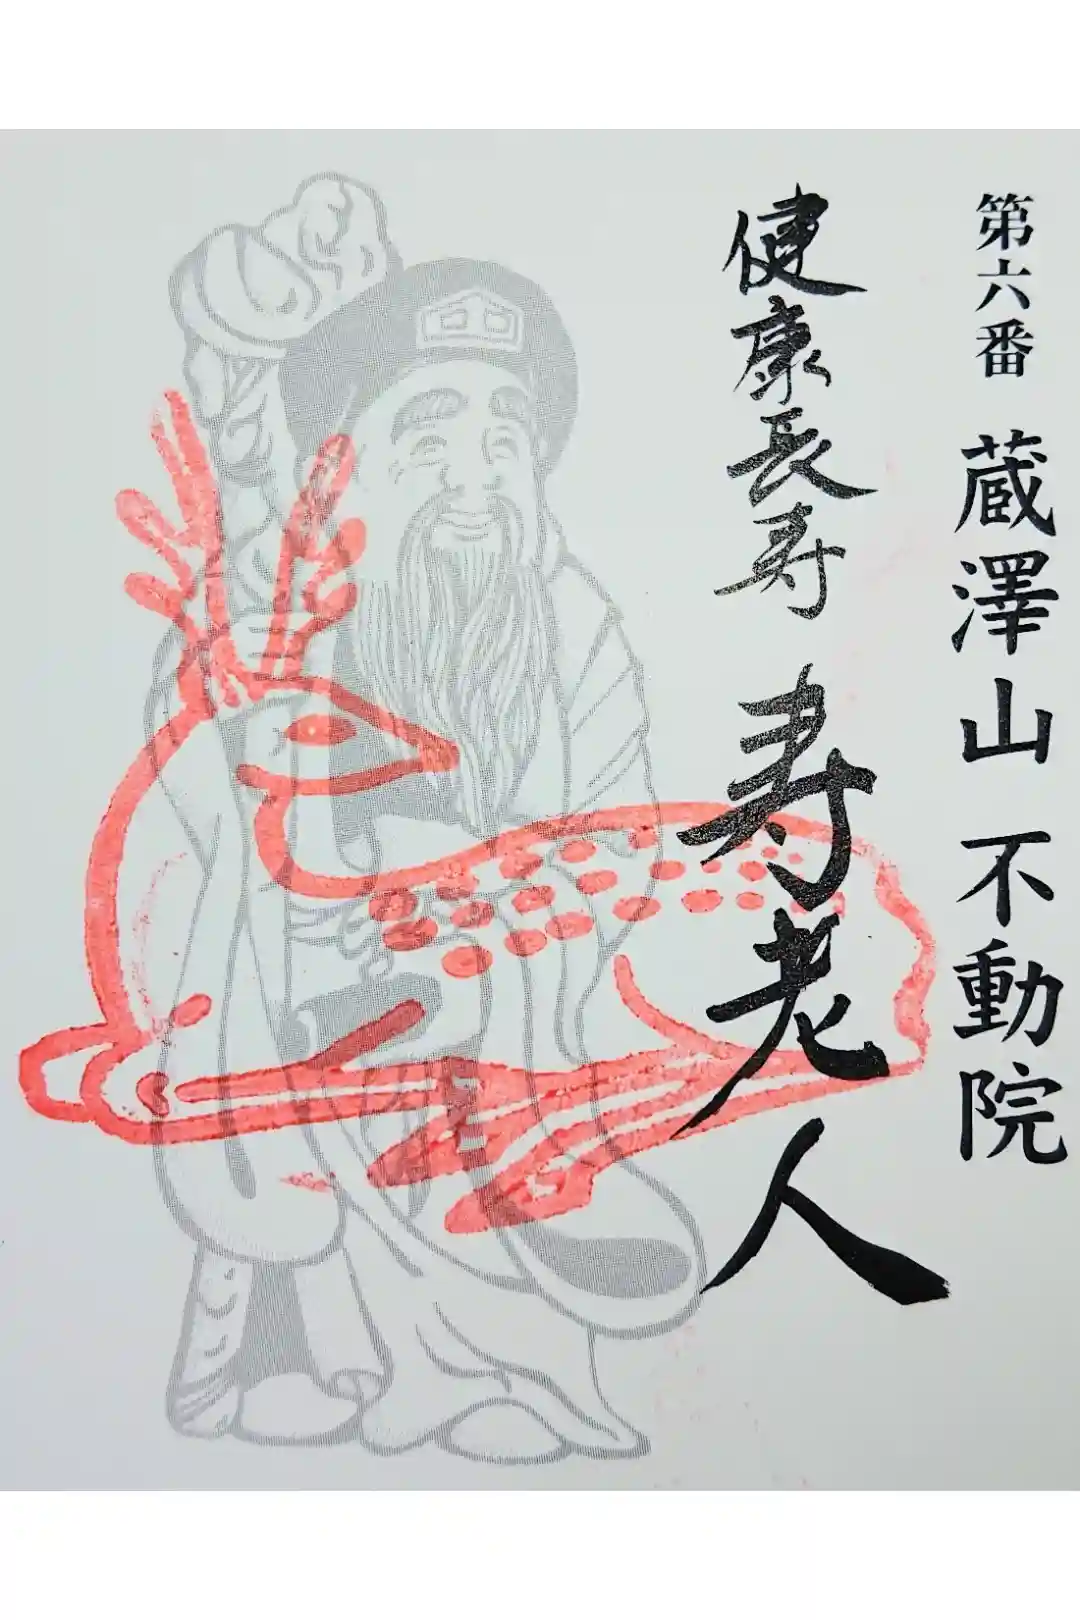 第六番 蔵澤山 不動院
健康長寿 寿老人